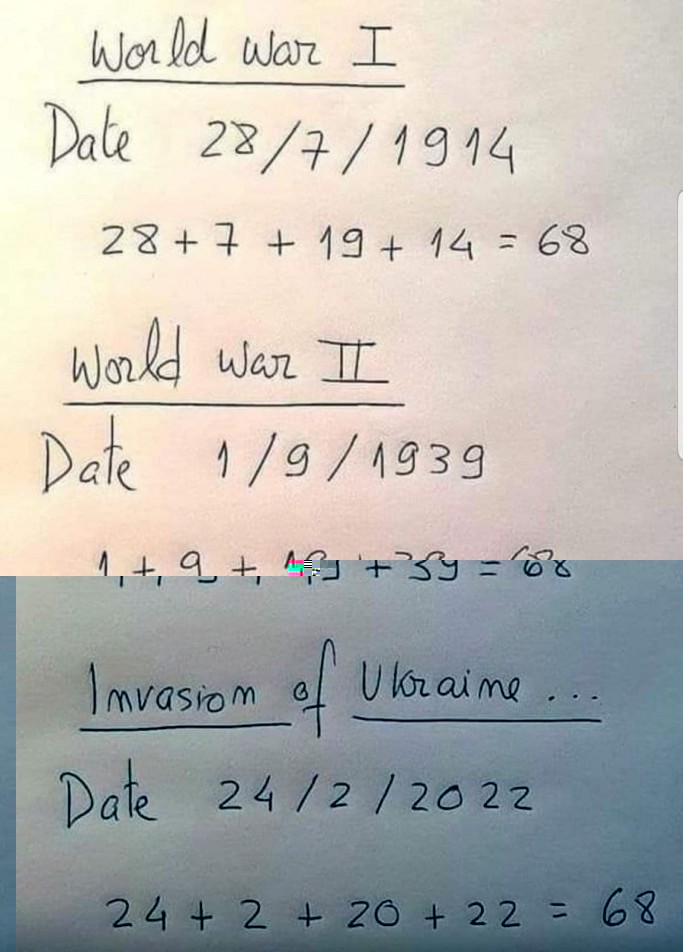 World War I
Date 28/7/1914
28 + 7 + 19 + 14 = 68
World War II
Date 1/9/1939
1 + 9 + 19 + 39 = 68
Invasion of Ukraine...
Date 24/2/2022
24 + 2 + 20 + 22 = 68